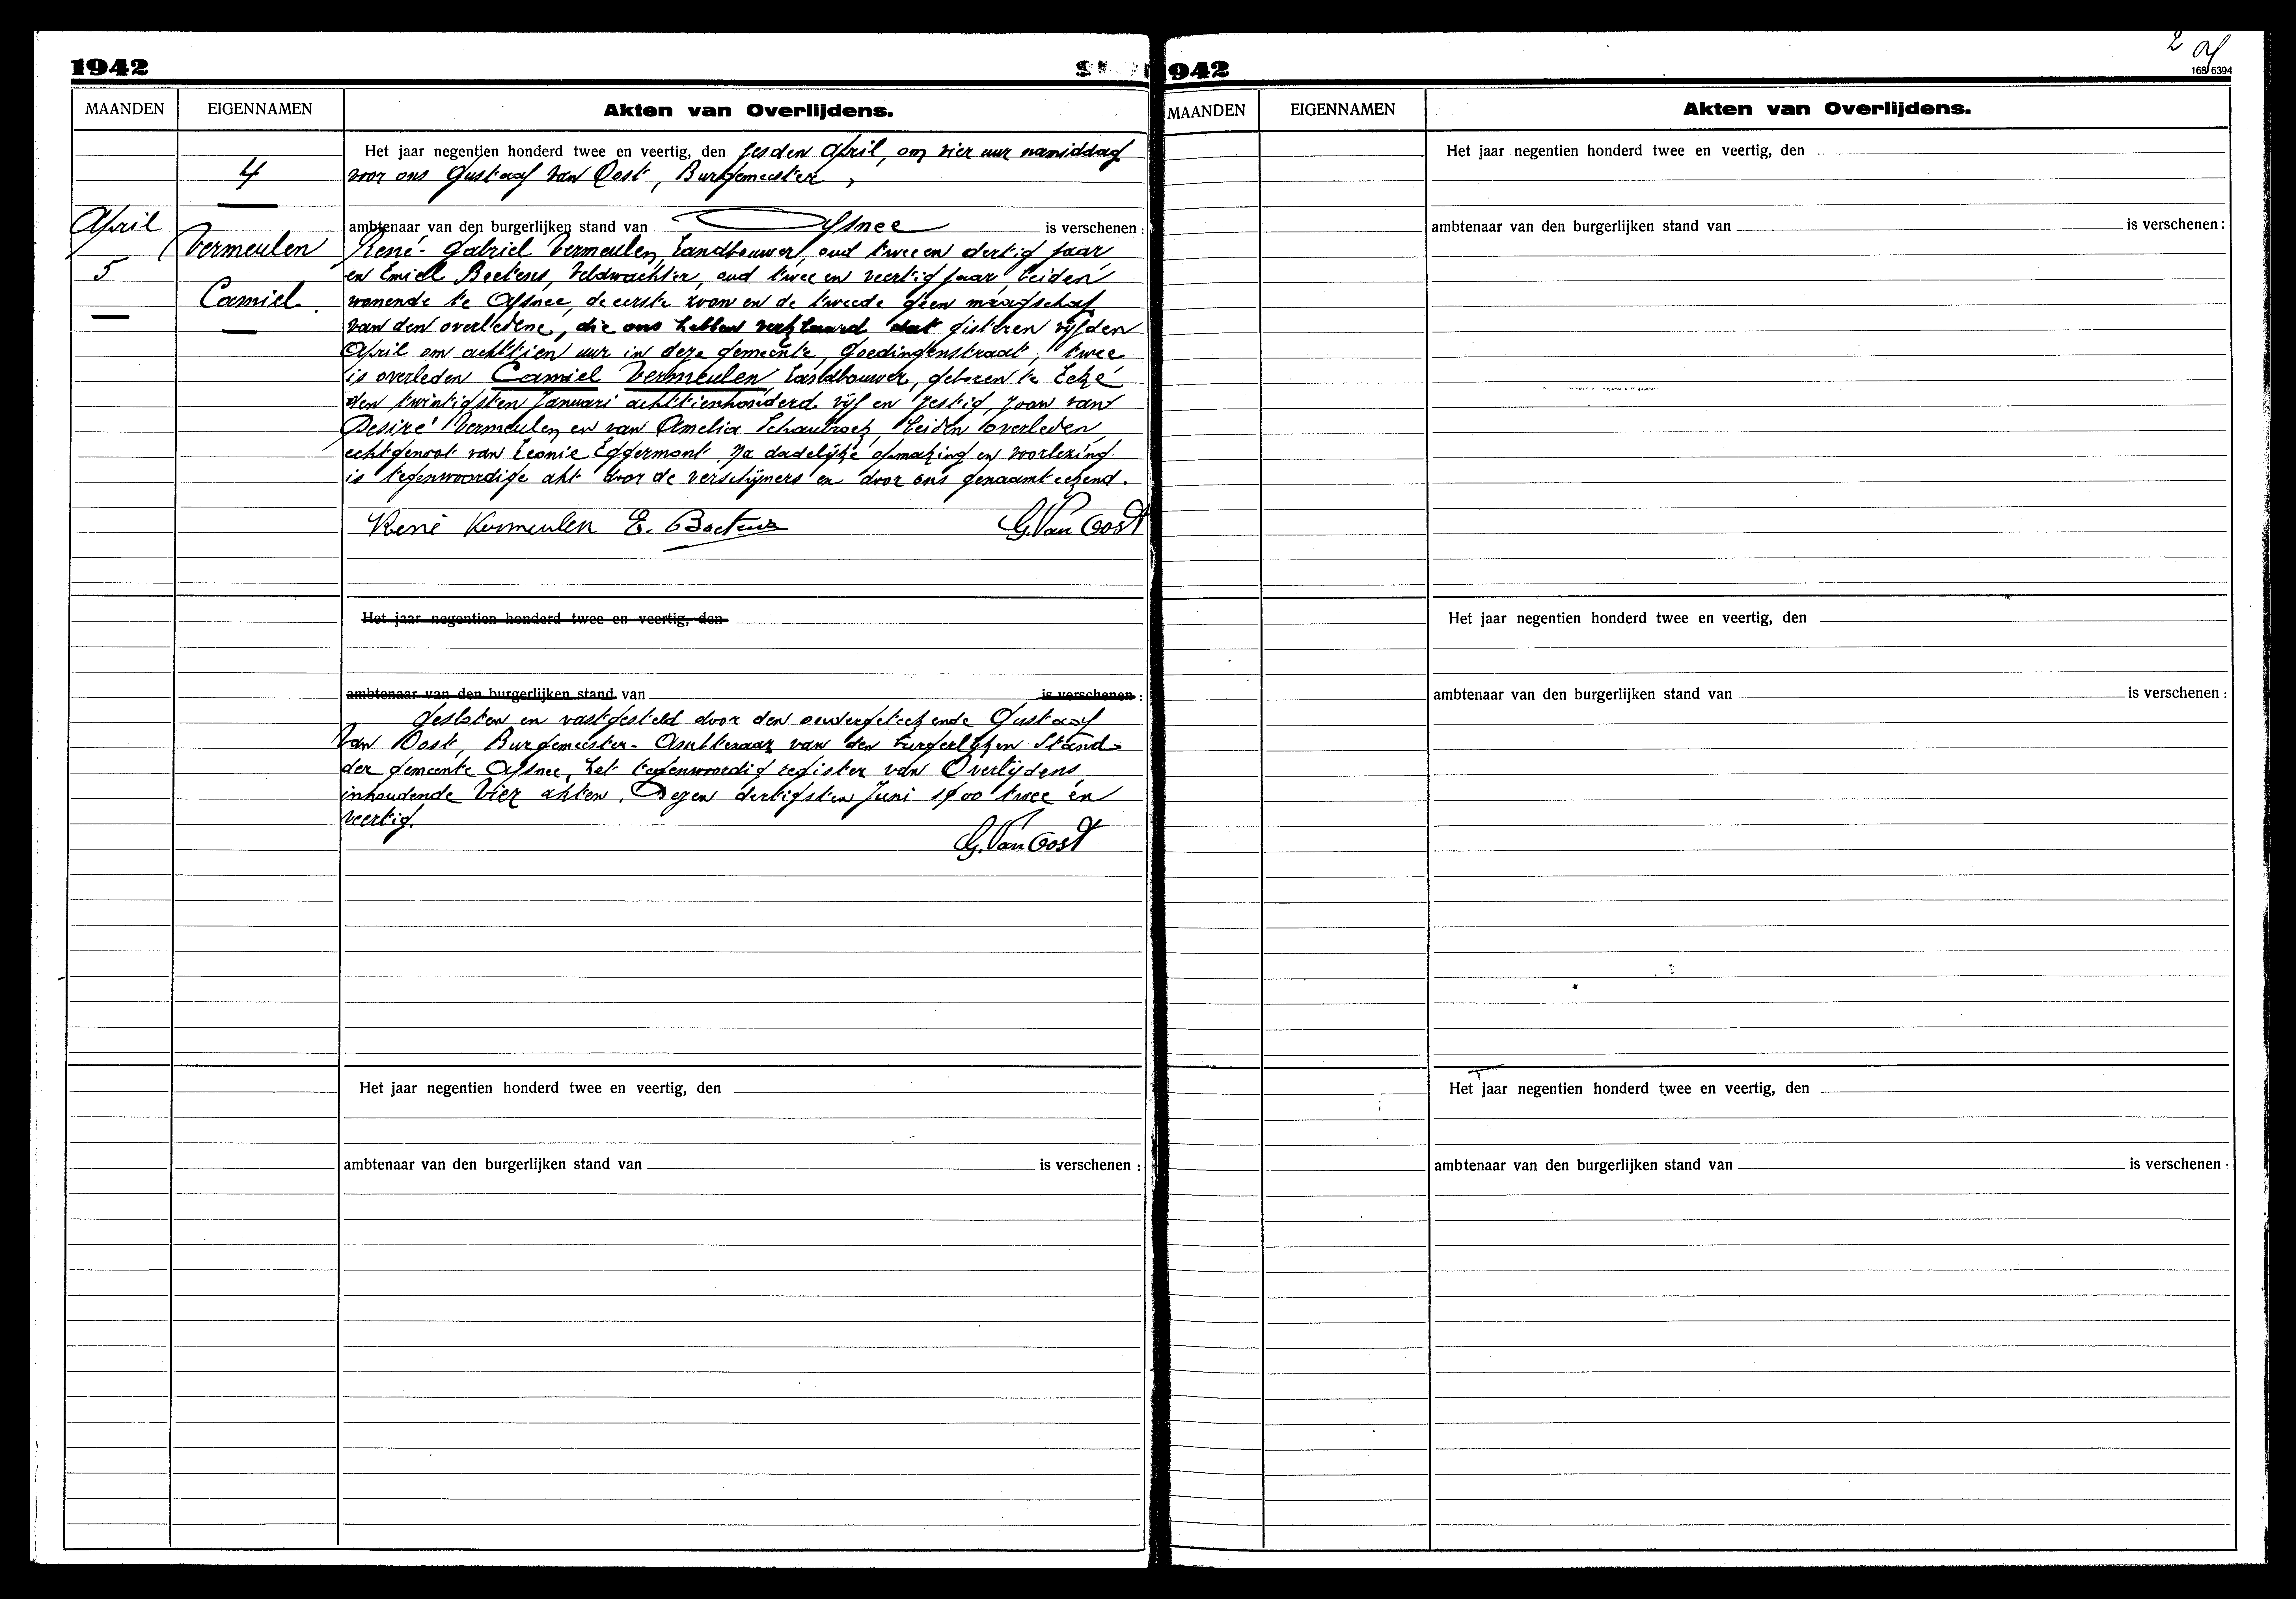 1942
MAANDEN EIGENNAMEN Akten van Overlijdens.
Het jaar negentien honderd twee en veertig, den zesden April, om vier uur namiddag
4
voor ons Gustaaf Van Oost, Burgemeester,
April
ambtenaar van den burgerlijken stand van Afsnee is verschenen :
Vermeulen
René-Gabriel Vermeulen, landbouwer, oud twee en dertig jaar
5
en Emiel Beetens, veldwachter, oud twee en veertig jaar, beiden
Camiel.
wonende te Afsnee, de eerste zoon en de tweede geen maagschap
van den overledene, die ons hebben verklaard dat gisteren vijfden
April om achttien uur in deze gemeente, Goedingenstraat, twee
is overleden Camiel Vermeulen, landbouwer, geboren te Eeke
den twintigsten Januari achttienhonderd vijf en zestig, zoon van
Desiré Vermeulen en van Amelia Schaubroek, beiden overleden,
echtgenoot van Leonie Eggermont. Na dadelijke opmaking en voorlezing
is tegenwoordige akt door de verschijners en door ons genaamteekend.
René Vermeulen E. Beetens G. Van Oost
Het jaar negentien honderd twee en veertig, den
ambtenaar van den burgerlijken stand van is verschenen :
Gesloten en vastgesteld door den ondergeteekende Gustaaf
Van Oost, Burgemeester-Ambtenaar van den burgerlijken Stand
der gemeente Afsnee, het tegenwoordig register van Overlijdens
inhoudende vier akten. Dezen dertigsten Juni 1900 twee en
veertig.
G. Van Oost
Het jaar negentien honderd twee en veertig, den
ambtenaar van den burgerlijken stand van is verschenen :
2
168/6394
1942
MAANDEN EIGENNAMEN Akten van Overlijdens.
Het jaar negentien honderd twee en veertig, den
ambtenaar van den burgerlijken stand van is verschenen :
Het jaar negentien honderd twee en veertig, den
ambtenaar van den burgerlijken stand van is verschenen :
Het jaar negentien honderd twee en veertig, den
ambtenaar van den burgerlijken stand van is verschenen :